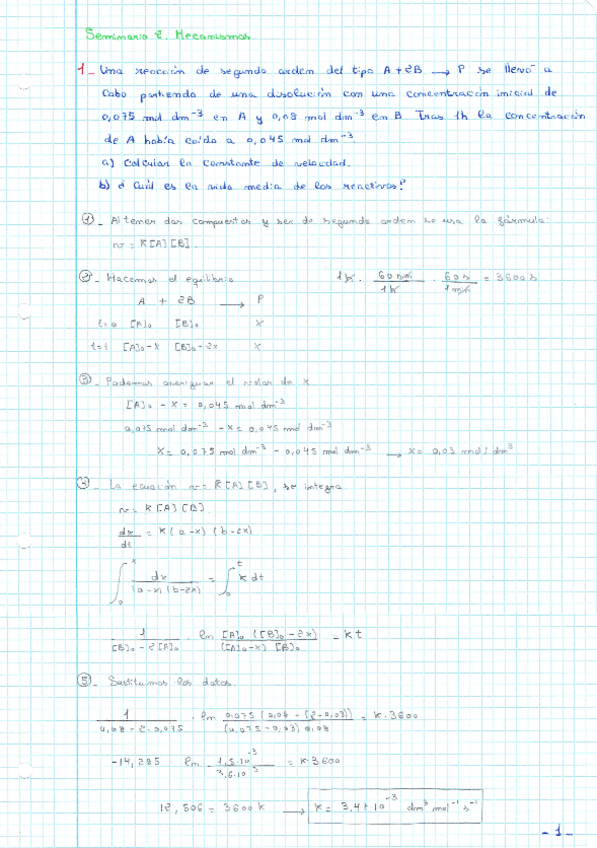 Seminario 2. Mecanismos
1_ Una reacción de segundo orden del tipo A + 2B → P se llevó a
cabo partiendo de una disolución con una concentración inicial de
0,075 mol dm⁻³ en A y 0,08 mol dm⁻³ en B. Tras 1h la concentración
de A había caído a 0,045 mol dm⁻³.
a) Calcular la constante de velocidad.
b) ¿Cuál es la vida media de los reactivos?
①_ Al tener dos compuestos y ser de segundo orden se usa la fórmula:
v = K[A][B].
②_ Hacemos el equilibrio 1h · 60 min/1h · 60 s/1 min = 3600 s
A + 2B → P
t=0 [A]₀ [B]₀ X
t=t [A]₀-X [B]₀-2x X
③_ Podemos averiguar el valor de x
[A]₀ - X = 0,045 mol dm⁻³
0,075 mol dm⁻³ - X = 0,045 mol dm⁻³
X = 0,075 mol dm⁻³ - 0,045 mol dm⁻³ → X = 0,03 mol / dm³
④_ La ecuación v = K[A][B], se integra
v = K[A][B]
dx/dt = K(a-x)(b-2x)
∫₀ˣ dx/((a-x)(b-2x)) = ∫₀ᵗ k dt
1/([B]₀-2[A]₀) · ln [A]₀([B]₀-2x)/(([A]₀-x)[B]₀) = kt
⑤_ Sustituimos los datos.
1/(0,08-2·0,075) · ln 0,075(0,08-(2·0,03))/((0,075-0,03)0,08) = K·3600
-14,285 ln 1,5·10⁻³/3,6·10⁻³ = K·3600
12,506 = 3600 K → K = 3,47·10⁻³ dm³ mol⁻¹ s⁻¹
-1-